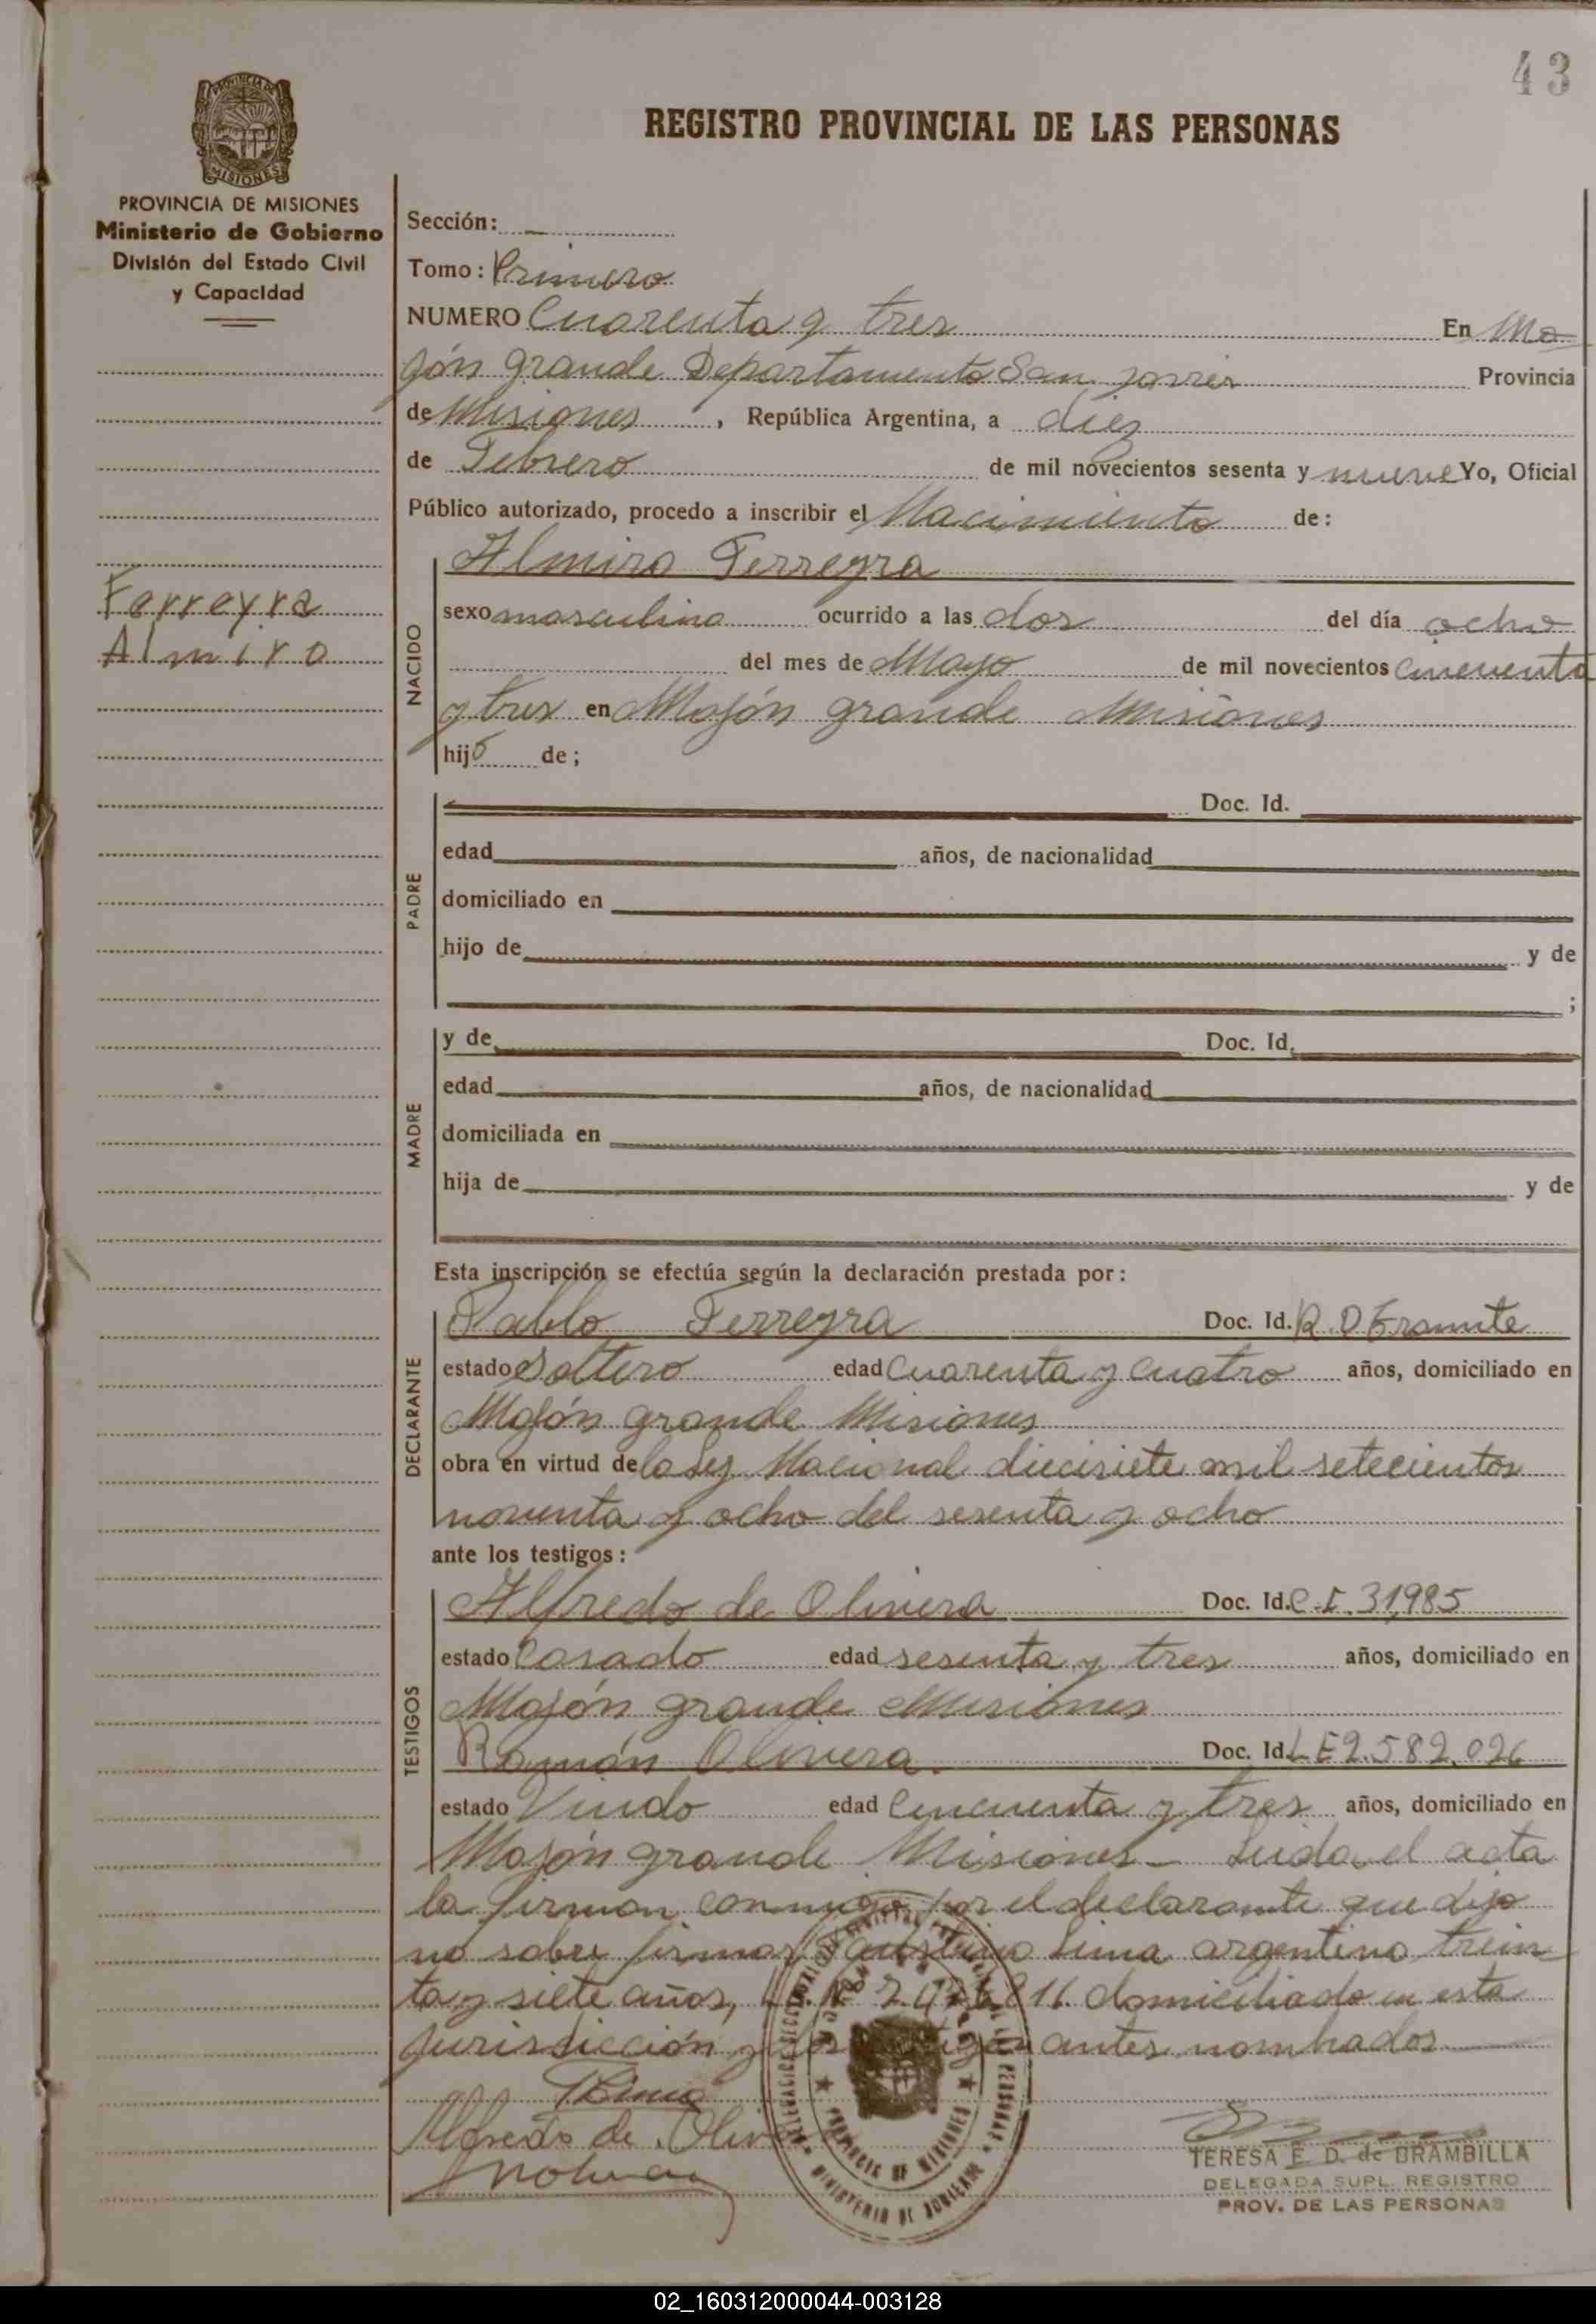 43
PROVINCIA DE MISIONES
REGISTRO PROVINCIAL DE LAS PERSONAS
PROVINCIA DE MISIONES
Ministerio de Gobierno
División del Estado Civil
y Capacidad
Ferreyra
Almiro
Sección: —
Tomo: Primero
NUMERO Cuarenta y tres En Mo
jón grande Departamento San Javier Provincia
de Misiones, República Argentina, a diez
de Febrero de mil novecientos sesenta y nueve Yo, Oficial
Público autorizado, procedo a inscribir el Nacimiento de:
NACIDO
Almiro Ferreyra
sexo masculino ocurrido a las dos del día ocho
del mes de Mayo de mil novecientos cincuenta
y tres en Mojón grande Misiones
hijo de;
PADRE
Doc. Id.
edad años, de nacionalidad
domiciliado en
hijo de y de
;
MADRE
y de Doc. Id.
edad años, de nacionalidad
domiciliada en
hija de y de
Esta inscripción se efectúa según la declaración prestada por:
DECLARANTE
Pablo Ferreyra Doc. Id. R.D Tramite
estado Soltero edad Cuarenta y cuatro años, domiciliado en
Mojón grande Misiones
obra en virtud de la Ley Nacional diecisiete mil setecientos
noventa y ocho del sesenta y ocho
ante los testigos:
TESTIGOS
Alfredo de Olivera Doc. Id. C.I. 31,985
estado Casado edad sesenta y tres años, domiciliado en
Mojón grande Misiones
Ramón Olivera. Doc. Id. LE 2.582.026
estado Viudo edad Cincuenta y tres años, domiciliado en
Mojón grande Misiones - Leida el acta
la firman conmigo por el declarante que dijo
no saber firmar Lima argentino trein
ta y siete años, 811 domiciliado en esta
jurisdicción y los testigos antes nombrados
Lima
Alfredo de Oliv
PROVINCIA DE MISIONES
MINISTERIO DE GOBIERNO
TERESA E. D. de BRAMBILLA
DELEGADA SUPL. REGISTRO
PROV. DE LAS PERSONAS
02_160312000044-003128